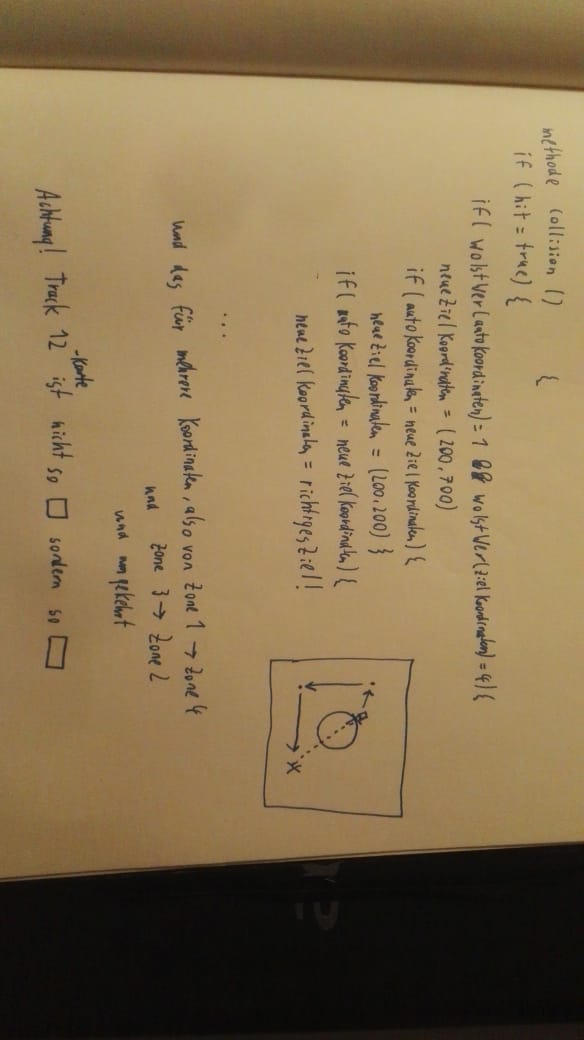 methode Collision () {
if (hit = true) {
if( woIstVer(autoKoordinaten) = 1 && woIstVer(ZielKoordinaten) = 4) {
neueZielKoordinaten = (200,700)
if ( autoKoordinaten = neueZielKoordinaten) {
neueZielKoordinaten = (200,200) }
if( autoKoordinaten = neueZielKoordinaten) {
neueZielKoordinaten = richtigesZiel!
...
und das für mehrere Koordinaten, also von Zone 1 → Zone 4
und Zone 3 → Zone 2
und umgekehrt
Achtung! Track 12-Karte ist nicht so □ sondern so ▭